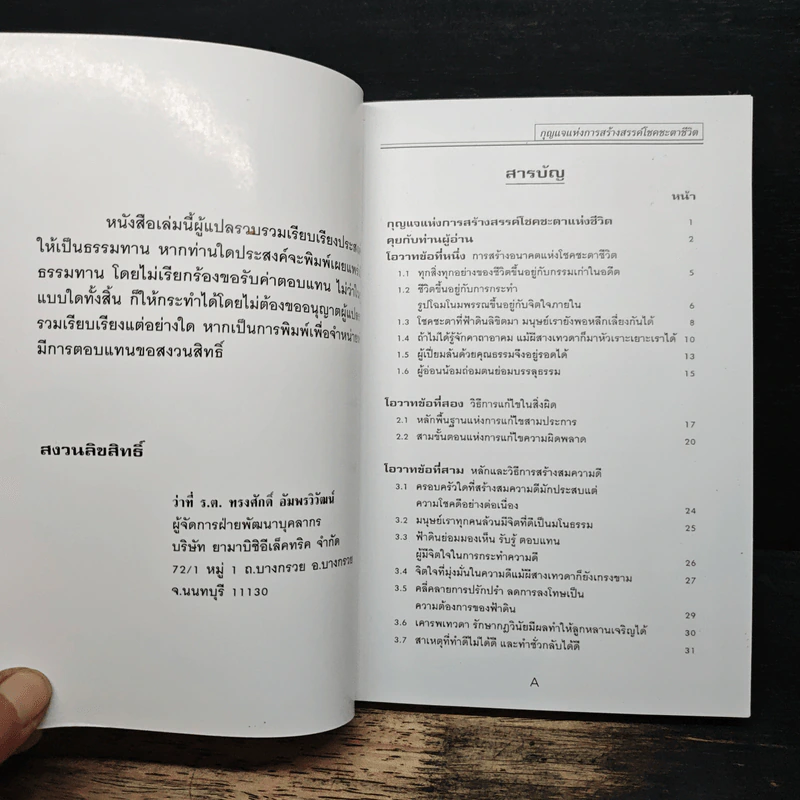 หนังสือเล่มนี้ผู้แปลรวบรวมเรียบเรียงประสงค์
ให้เป็นธรรมทาน หากท่านใดประสงค์จะพิมพ์เผยแพร่
ธรรมทาน โดยไม่เรียกร้องขอรับค่าตอบแทน ไม่ว่าใน
แบบใดทั้งสิ้น ก็ให้กระทำได้โดยไม่ต้องขออนุญาตผู้แปล
รวมเรียบเรียงแต่อย่างใด หากเป็นการพิมพ์เพื่อจำหน่าย
มีการตอบแทนขอสงวนสิทธิ์
สงวนลิขสิทธิ์
ว่าที่ ร.ต. ทรงศักดิ์ อัมพรวิวัฒน์
ผู้จัดการฝ่ายพัฒนาบุคลากร
บริษัท ยามาบิชิอีเล็คทริค จำกัด
72/1 หมู่ 1 ถ.บางกรวย อ.บางกรวย
จ.นนทบุรี 11130
กุญแจแห่งการสร้างสรรค์โชคชะตาชีวิต
สารบัญ
หน้า
กุญแจแห่งการสร้างสรรค์โชคชะตาแห่งชีวิต 1
คุยกับท่านผู้อ่าน 2
โอวาทข้อที่หนึ่ง การสร้างอนาคตแห่งโชคชะตาชีวิต
1.1 ทุกสิ่งทุกอย่างของชีวิตขึ้นอยู่กับกรรมเก่าในอดีต 5
1.2 ชีวิตขึ้นอยู่กับการกระทำ
รูปโฉมโนมพรรณขึ้นอยู่กับจิตใจภายใน 6
1.3 โชคชะตาที่ฟ้าดินลิขิตมา มนุษย์เรายังพอหลีกเลี่ยงกันได้ 8
1.4 ถ้าไม่ได้รู้จักคาถาอาคม แม้ผีสางเทวดาก็มาหัวเราะเยาะเราได้ 10
1.5 ผู้เปี่ยมล้นด้วยคุณธรรมจึงอยู่รอดได้ 13
1.6 ผู้อ่อนน้อมถ่อมตนย่อมบรรลุธรรม 15
โอวาทข้อที่สอง วิธีการแก้ไขในสิ่งผิด
2.1 หลักพื้นฐานแห่งการแก้ไขสามประการ 17
2.2 สามขั้นตอนแห่งการแก้ไขความผิดพลาด 20
โอวาทข้อที่สาม หลักและวิธีการสร้างสมความดี
3.1 ครอบครัวใดที่สร้างสมความดีมักประสบแต่
ความโชคดีอย่างต่อเนื่อง 24
3.2 มนุษย์เราทุกคนล้วนมีจิตที่ดีเป็นมโนธรรม 25
3.3 ฟ้าดินย่อมมองเห็น รับรู้ ตอบแทน
ผู้มีจิตใจในการกระทำความดี 26
3.4 จิตใจที่มุ่งมั่นในความดีแม้ผีสางเทวดาก็ยังเกรงขาม 27
3.5 คลี่คลายการปรักปรำ ลดการลงโทษเป็น
ความต้องการของฟ้าดิน 29
3.6 เคารพเทวดา รักษากฎวินัยมีผลทำให้ลูกหลานเจริญได้ 30
3.7 สาเหตุที่ทำดีไม่ได้ดี และทำชั่วกลับได้ดี 31
A